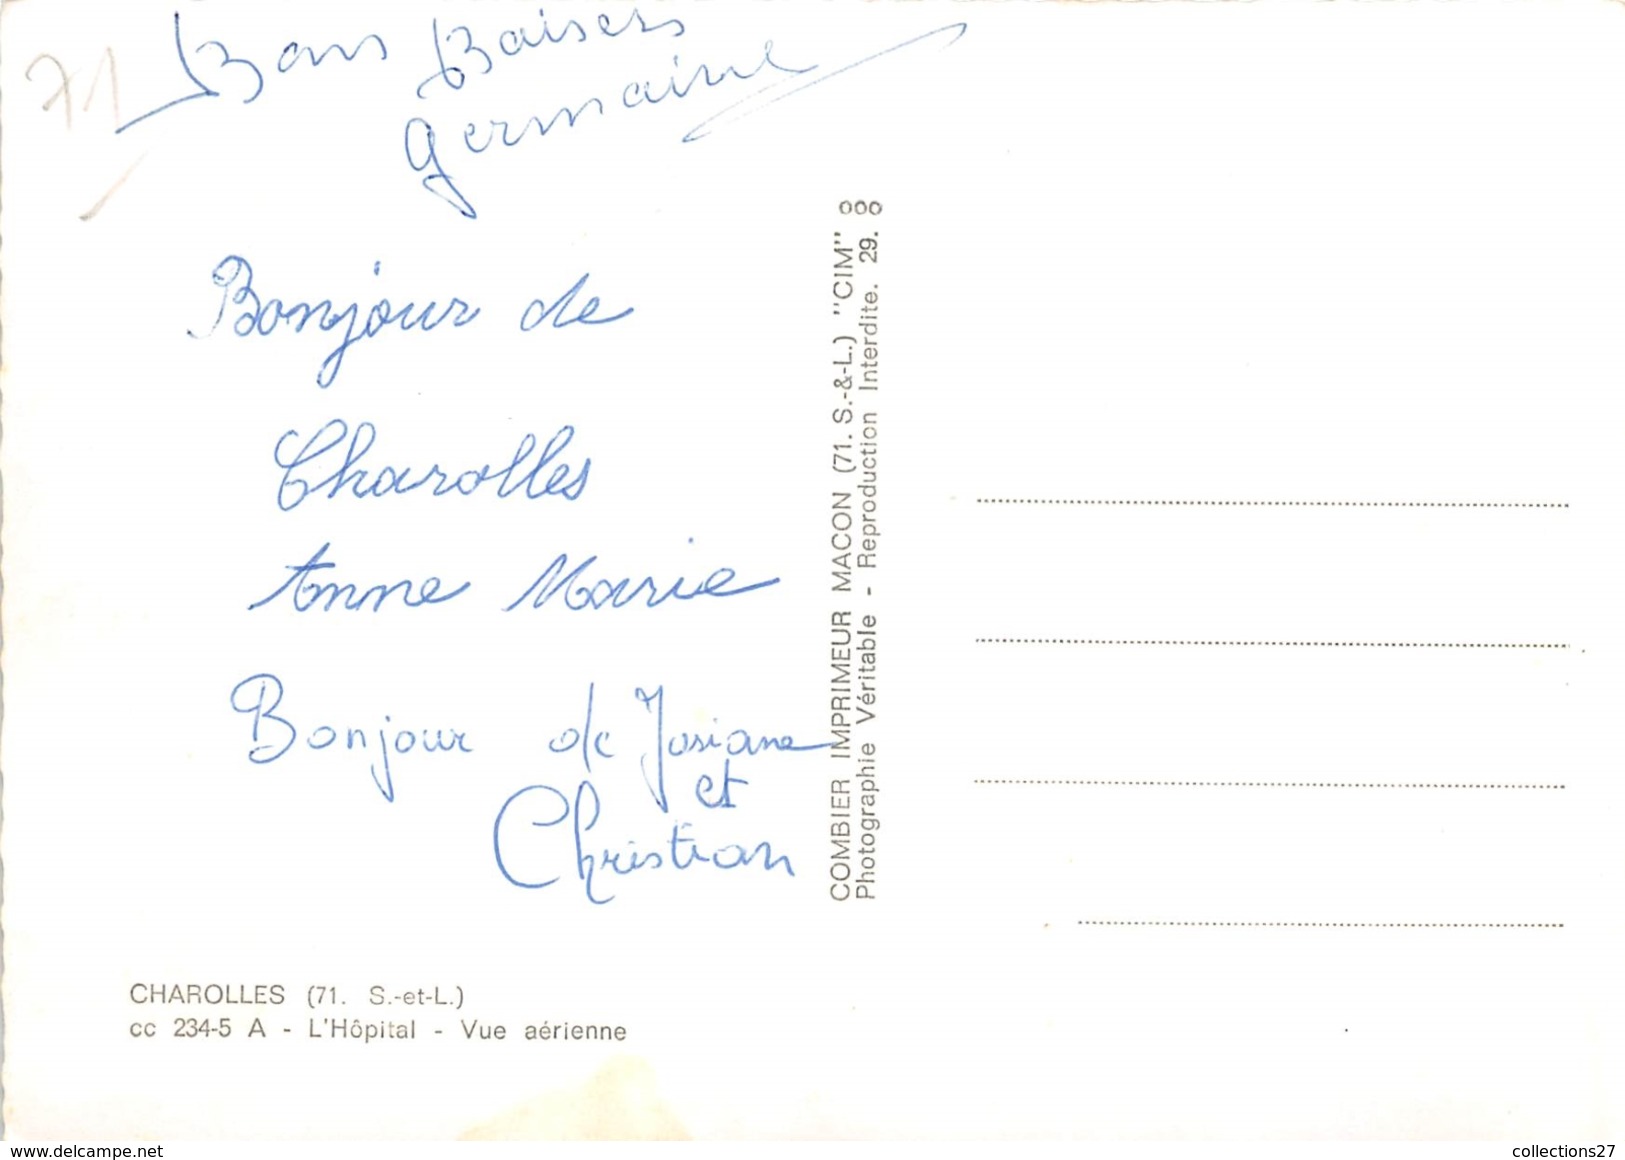 71
Bons Baisers
germaine
Bonjour de
Charolles
Anne Marie
Bonjour de Josiane
et
Christian
COMBIER IMPRIMEUR MACON (71. S.-&-L.) "CIM"
Photographie Véritable - Reproduction Interdite. 29.
CHAROLLES (71. S.-et-L.)
cc 234-5 A - L'Hôpital - Vue aérienne
www.delcampe.net
collections27